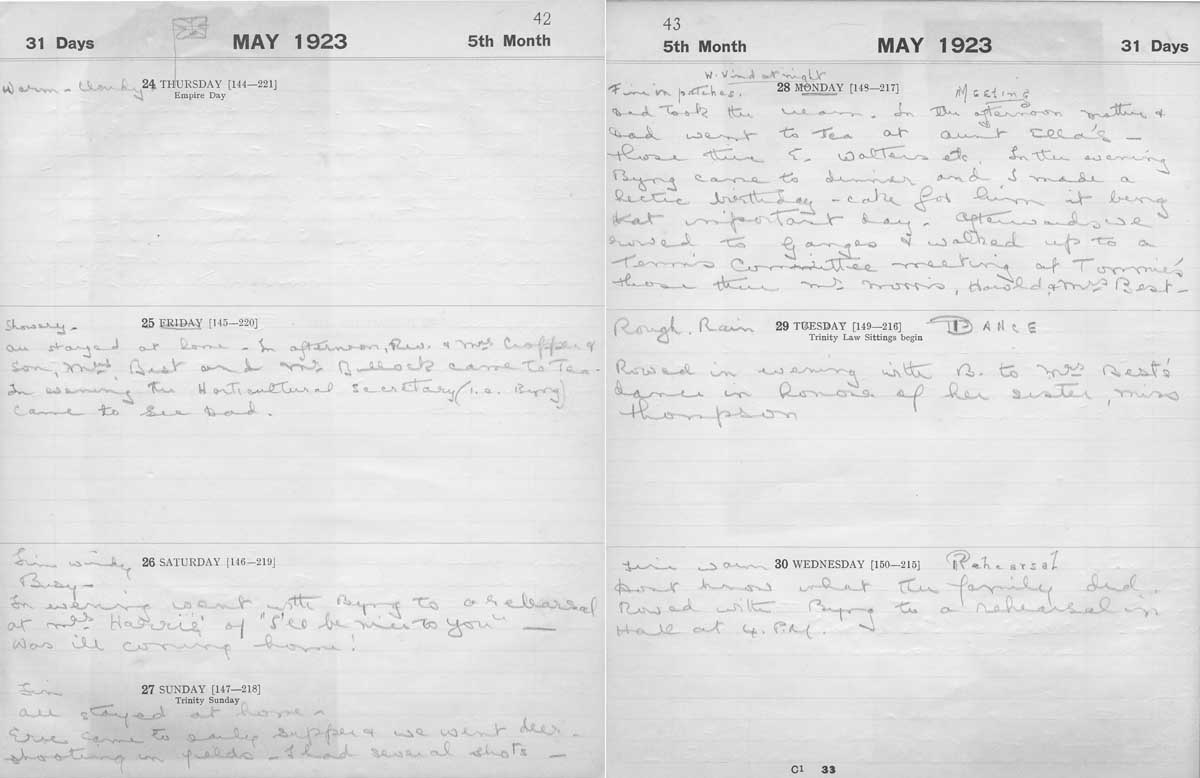 42
31 Days MAY 1923 5th Month
Warm - Cloudy 24 THURSDAY [144—221]
Empire Day
Showery - 25 FRIDAY [145—220]
all stayed at home - In afternoon, Rev. & Mrs Cropper &
son, Mrs Best and Mr Bullock came to Tea -
In evening the Horticultural Secretary (i.e. Byng)
came to see Dad.
Fine windy 26 SATURDAY [146—219]
Busy -
In evening went with Byng to a rehearsal
at Mrs Harris' of "I'll be nice to you" —
Was ill coming home!
Fine 27 SUNDAY [147—218]
Trinity Sunday
all stayed at home -
Eric came to early supper & we went deer -
shooting in fields - I had several shots —
43
5th Month MAY 1923 31 Days
W. Wind at night
Fine in patches. 28 MONDAY [148—217] Meeting
Dad took the . In the afternoon mother &
Dad went to Tea at aunt Ella's —
those there E. Walters etc. In the evening
Byng came to dinner and I made a
hectic birthday - cake for him it being
that important day. Afterwards we
rowed to Ganges & walked up to a
Tennis Committee meeting at Tommie's
those there Mr Morris, Harold & Mrs Best -
Rough. Rain 29 TUESDAY [149—216] DANCE
Trinity Law Sittings begin
Rowed in evening with B. to Mrs Best's
dance in honour of her sister, Miss
Thompson
Fine warm 30 WEDNESDAY [150—215] Rehearsal
Don't know what the family did.
Rowed with Byng to a rehearsal in
Hall at 4. P.M.
C1 33